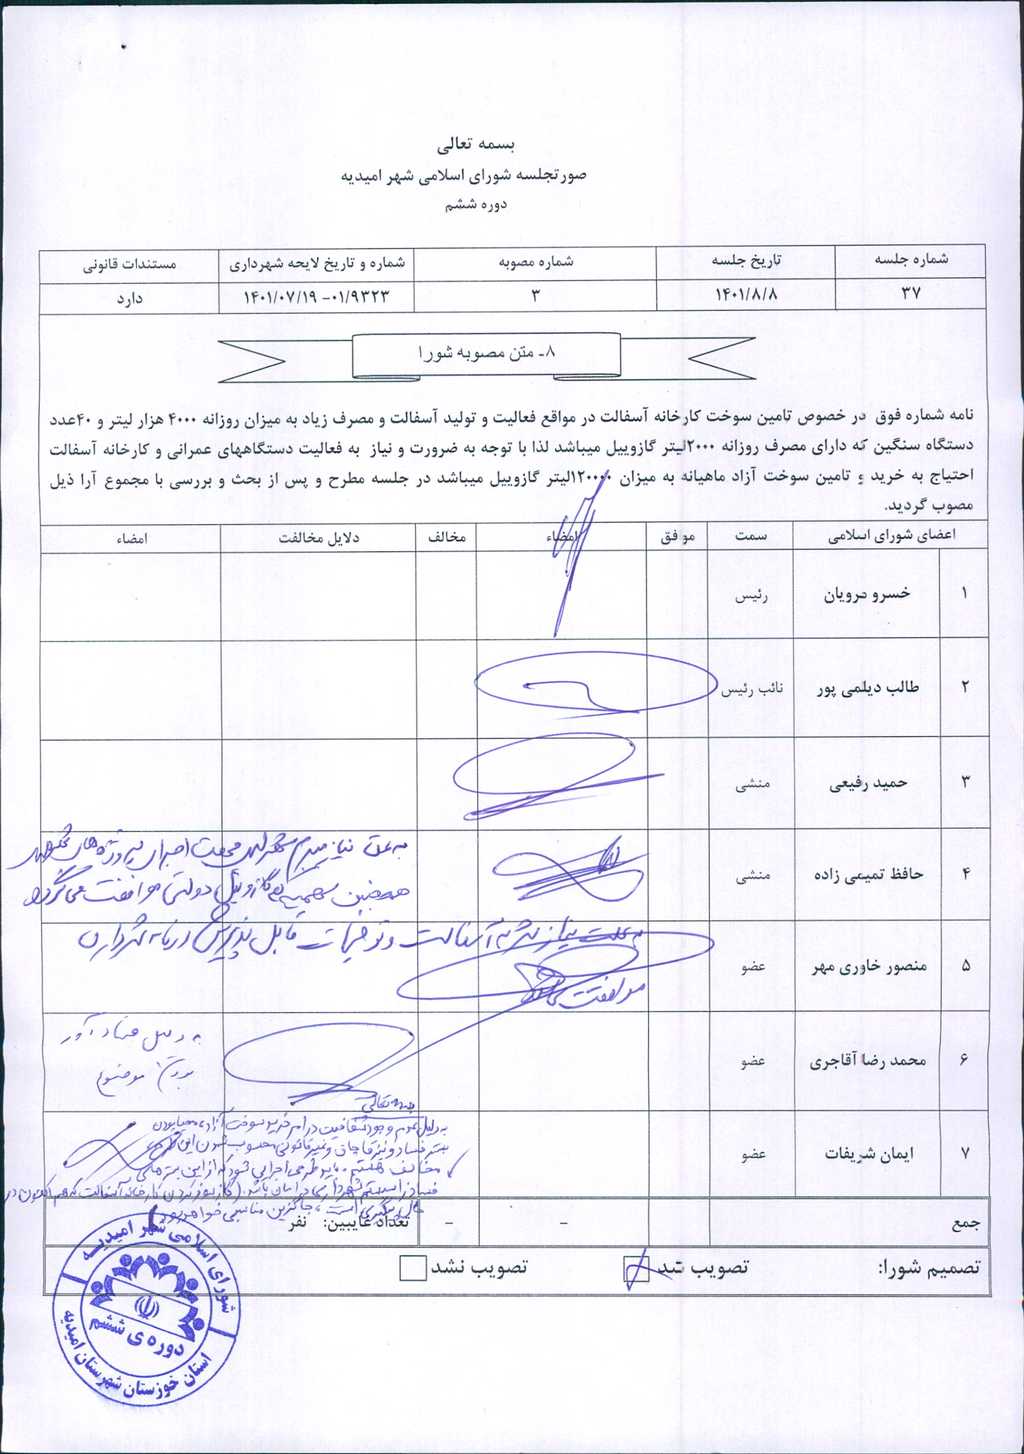 بسمه تعالی
صورتجلسه شورای اسلامی شهر امیدیه
دوره ششم
شماره جلسه تاریخ جلسه شماره مصوبه شماره و تاریخ لایحه شهرداری مستندات قانونی
۳۷ ۱۴۰۱/۸/۸ ۳ ۰۱/۹۳۲۳- ۱۴۰۱/۰۷/۱۹ دارد
۸- متن مصوبه شورا
نامه شماره فوق در خصوص تامین سوخت کارخانه آسفالت در مواقع فعالیت و تولید آسفالت و مصرف زیاد به میزان روزانه ۴۰۰۰ هزار لیتر و ۴۰عدد
دستگاه سنگین که دارای مصرف روزانه ۲۰۰۰لیتر گازوییل میباشد لذا با توجه به ضرورت و نیاز به فعالیت دستگاههای عمرانی و کارخانه آسفالت
احتیاج به خرید و تامین سوخت آزاد ماهیانه به میزان ۱۲۰۰۰۰لیتر گازوییل میباشد در جلسه مطرح و پس از بحث و بررسی با مجموع آرا ذیل
مصوب گردید.
اعضای شورای اسلامی سمت موافق امضاء مخالف دلایل مخالفت امضاء
۱ خسرو مرویان رئیس
۲ طالب دیلمی پور نائب رئیس
۳ حمید رفیعی منشی
۴ حافظ تمیمی زاده منشی
به علت نیاز مبرم شهر جهت اجرای پروژه های
همچنین سهمیه گازوئیل دولتی موافقت می گردد
۵ منصور خاوری مهر عضو
به علت نیاز شهر به آسفالت و توضیحات قابل پذیرش در نامه شهرداری
موافقت
۶ محمد رضا آقاجری عضو
به دلیل فساد آور
بودن موضوع
۷ ایمان شریفات عضو
بسمه تعالی
به دلیل عدم وجود شفافیت در امر خرید سوخت آزاد و
بستر فساد و نیز قاچاق و غیر قانونی محسوب شدن این
مخالف هستم. باید طرحی اجرایی شود که از این
فساد سیستم شهرداری در امان باشد. (گازسوز کردن کارخانه آسفالت که هم اکنون در
حال پیگیری است، جایگزین مناسبی خواهد بود)
جمع - - تعداد غایبین: نفر
تصمیم شورا: تصویب شد تصویب نشد
شورای اسلامی شهر امیدیه
دوره ی ششم
استان خوزستان شهرستان امیدیه